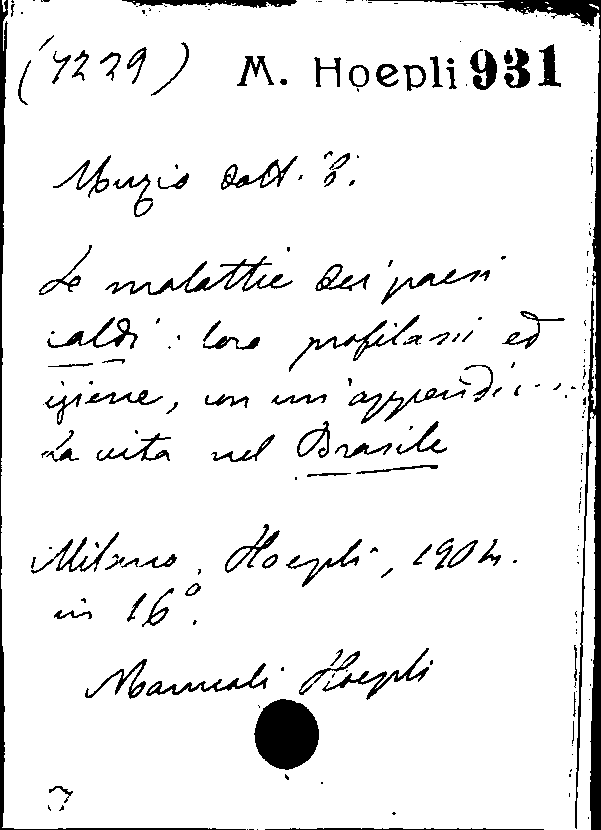 (7229) M. Hoepli 931
Muzio dott. C.
Le malattie dei paesi
caldi: loro profilassi ed
igiene, con un'appendi...
La vita nel Brasile
Milano, Hoepli, 1904.
in 16°.
Manuali Hoepli